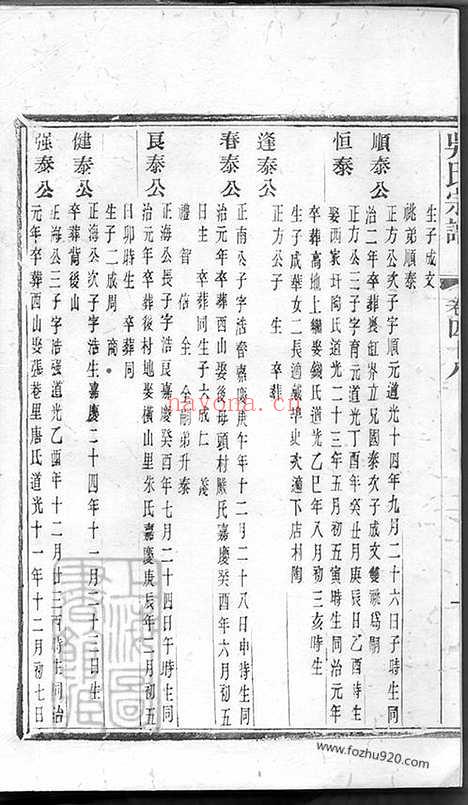 吳氏宗譜
卷四十八
生子成文
祧弟順泰
順泰公
正方公次子字順元道光十四年九月二十六日子時生同
治二年卒葬裏缸界立兄國泰次子成文雙祧為嗣
恒泰
正方公三子字育元道光丁酉年癸丑月庚辰日乙酉時生
娶西家圩陶氏道光二十三年五月初五寅時生同治元年
卒葬高地上繼娶錢氏道光乙巳年八月初三亥時生
生子成華女二長適戴埠史次適下店村陶
逢泰公
正方公子 生 卒葬
春泰公
正南公子字浩春嘉慶庚午年十二月二十八日申時生同
治元年卒葬西山娶後母頭村嚴氏嘉慶癸酉年六月初五
日生 卒葬同生子六成仁 義
禮 智 信 全 嗣弟升泰
良泰公
正海公長子字浩良嘉慶癸酉年七月二十四日午時生同
治元年卒葬後村地娶橫山里朱氏嘉慶庚辰年二月初五
日卯時生 卒葬同
生子二成周 商
健泰公
正海公次子字浩生嘉慶二十四年十一月二十三日生
卒葬背後山
强泰公
正海公三子字浩强道光乙酉年十二月廿三酉時生同治
元年卒葬西山娶張巷里唐氏道光十一年十二月初七日
nayona.cn
上海圖書館藏
www.fozhu920.com